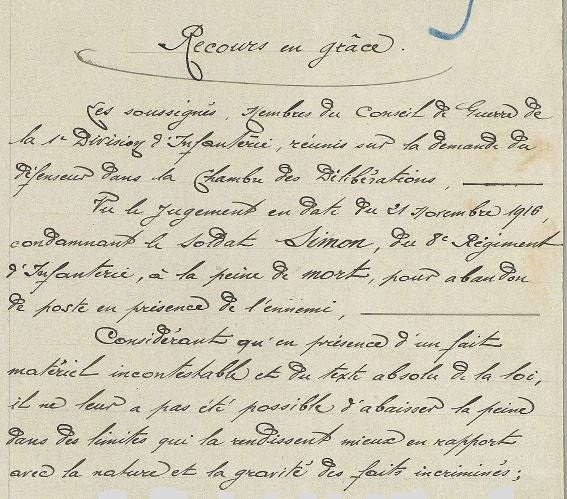 Recours en grâce.
Les soussignés, Membres du Conseil de Guerre de
la 1e Division d'Infanterie, réunis sur la demande du
défenseur dans la Chambre des Délibérations,
Vu le Jugement en date du 21 Novembre 1916,
condamnant le Soldat Simon, du 8e Régiment
d'Infanterie, à la peine de mort, pour abandon
de poste en présence de l'ennemi,
Considérant qu'en présence d'un fait
matériel incontestable et du texte absolu de la loi,
il ne leur a pas été possible d'abaisser la peine
dans des limites qui la rendissent mieux en rapport
avec la nature et la gravité des faits incriminés;